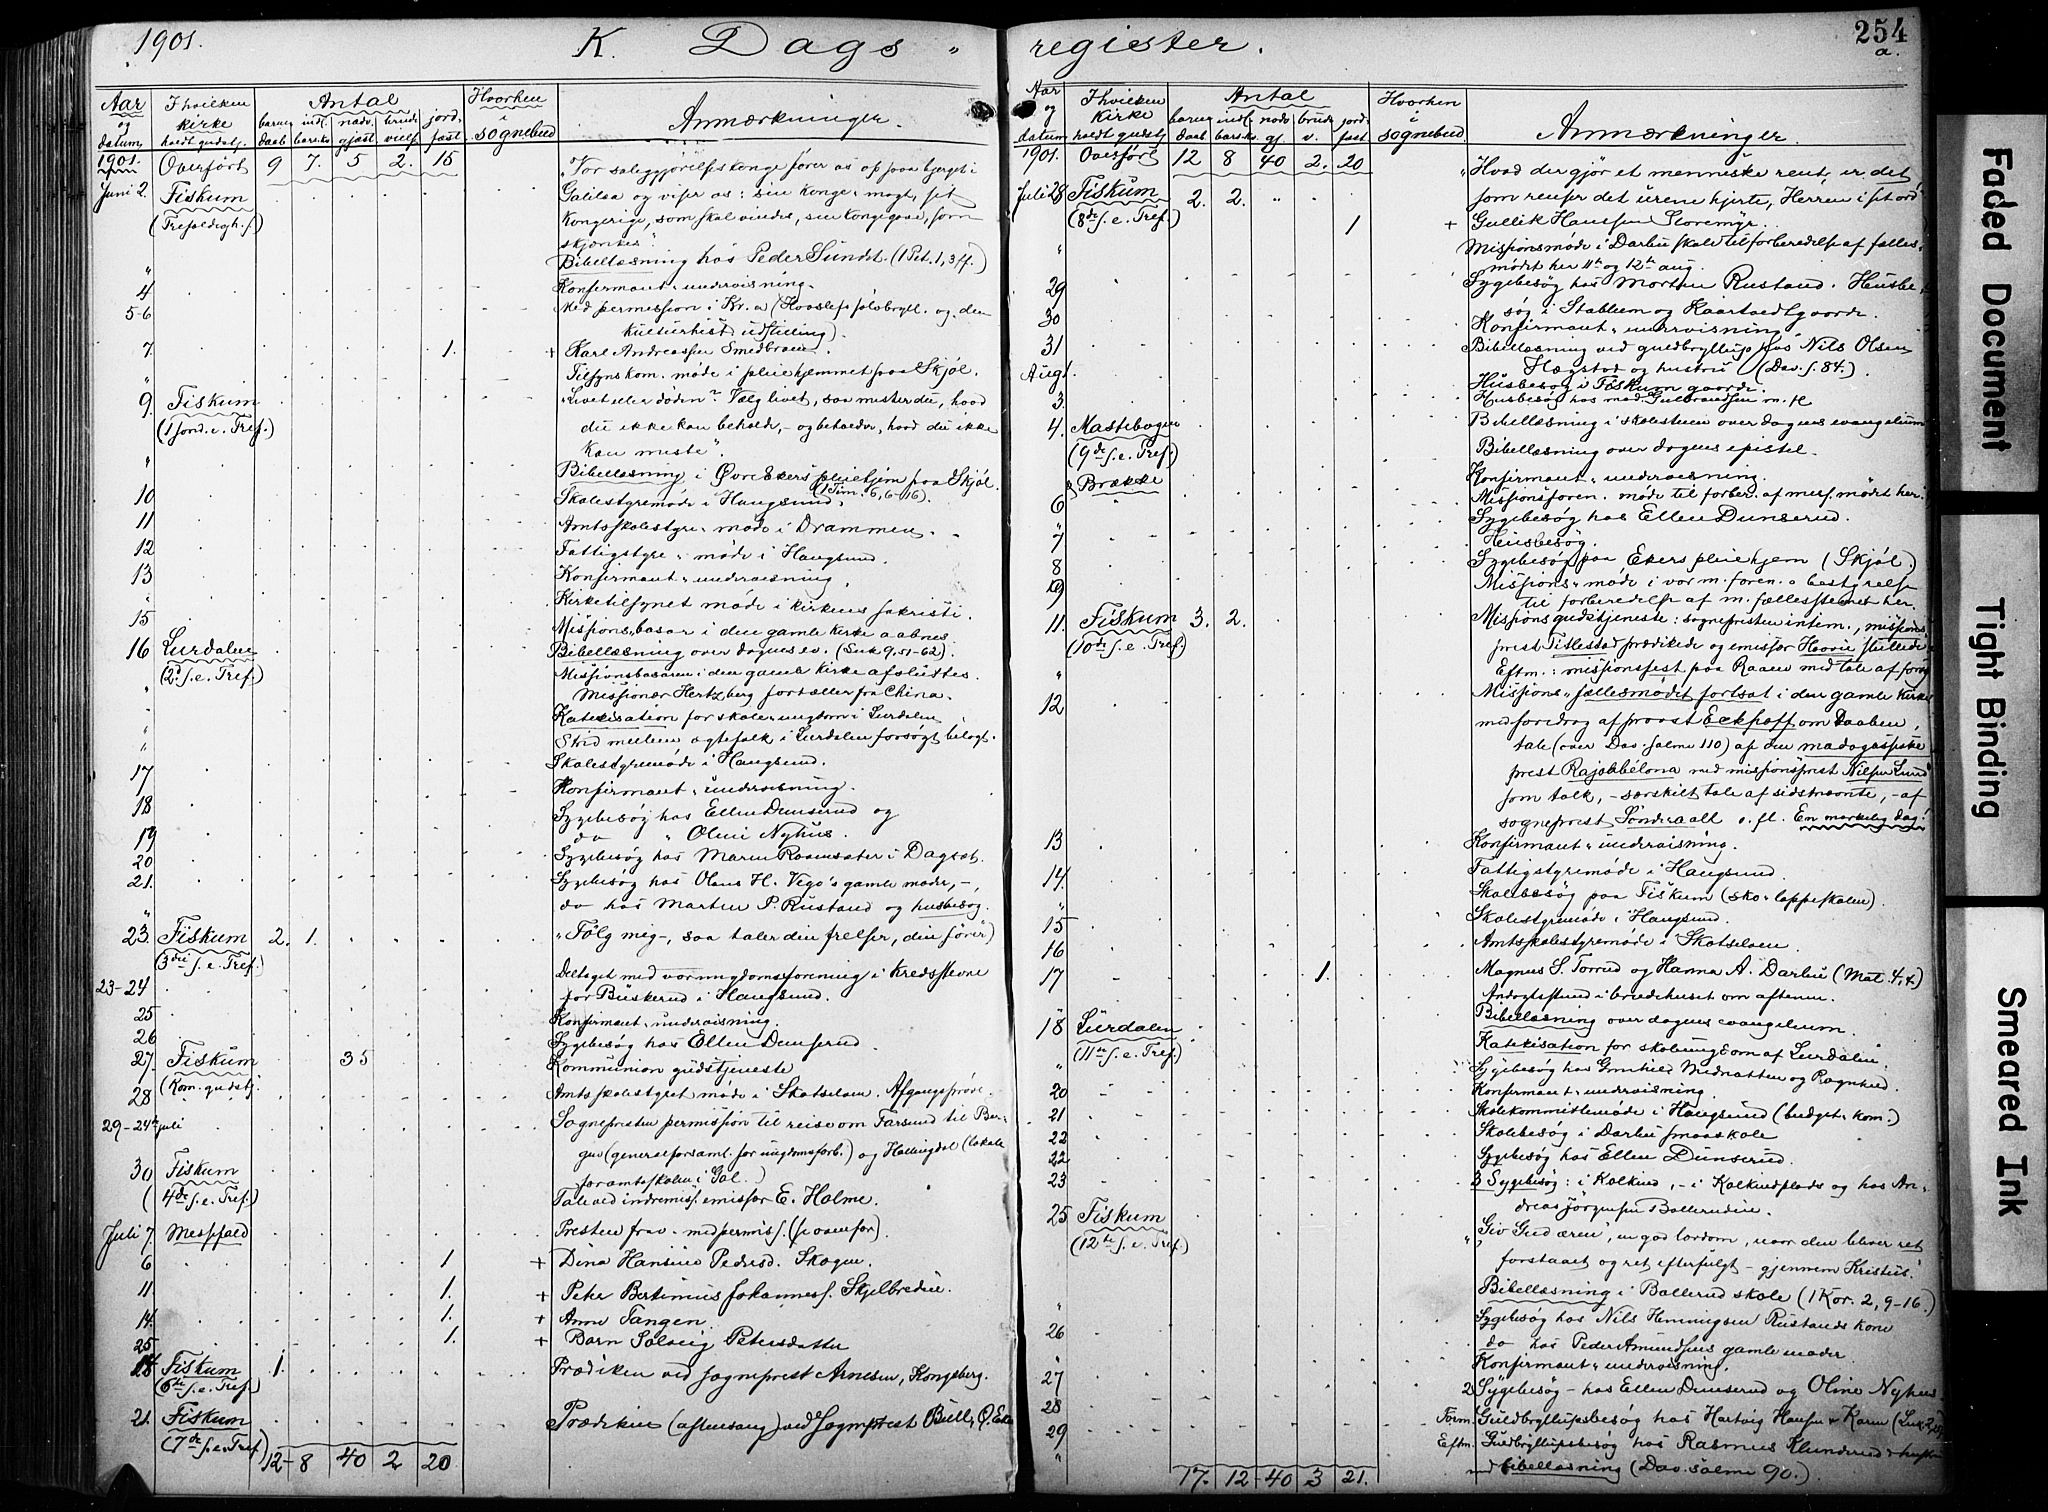 1901. K. Dags-
Aar og datum
I hvilken kirke holdt gudstj.
Antal
barnedaab indl. barsko. nadv. gjæst. brude vielf. jord. fæst.
Hvorhen i sognebud
Anmærkninger.
1901. Overført 9 7. 5 2. 15
"Vor saliggjörelses konge fører os op paa bjerget i
Juni 2. Fiskum
Galilæa og viser os: sin konge-magt, sit
(Trefoldigh. s.)
kongerige, som skal vindes, sin kongegave, som
skjænkes".
" Bibellæsning hos Peder Sundt. (1 Pet. 1, 3 ff.)
4 Konfirmant-undervisning.
5-6 Med permission i Kr.a (Hvoslefs sølvbryll. og den
kulturhist. udstilling).
7. 1. + Karl Andreassen Smedbraaten.
" Tilsynskom. møde i pleiehjemmet paa Skjøl.
9. Fiskum "Livet eller døden? Vælg livet, saa mister du, hvad
(1 sønd. e. Tref.) du ikke kan beholde, - og beholder, hvad du ikke
kan miste".
" Bibellæsning i Øvre Ekers pleiehjem paa Skjøl.
(1 Tim. 6, 6-16).
10 Skolestyremøde i Haugsund.
11 Amtsskolestyre-møde i Drammen.
12 Fattigstyre-møde i Haugsund.
13 Konfirmant-undervisning.
" Kirketilsynet møde i kirkens sakristi.
15 Missions-basar i den gamle kirke aabnes.
16 Lurdalen Bibellæsning over dagens ev. (Luk 9, 51-62).
(2d. s. e. Tref.) Missionsbasaren i den gamle kirke afsluttes.
" Missionær Hertzberg fortæller fra China.
" Katekisation for skole-ungdom i Lurdalen
" Strid mellem ægtefolk i Lurdalen forsøgt bilagt.
17 Skolestyremøde i Haugsund.
18 Konfirmant-undervisning.
19 Sygebesøg hos Ellen Dunserud og
do " Oline Nyhus.
20 Sygebesøg hos Maren Raamsæter i Dagsæt.
21. Sygebesøg hos Olaus H. Vego's gamle moder, -,
" do hos Martin P. Rustand og husbesøg.
23. Fiskum 2. 1. "Følg mig-, saa taler din frelser, din fører)
(3die s. e. Tref.)
23-24 Deltaget med vor ungdomsforening i kredsstevne
for Buskerud i Haugsund.
25 Konfirmant-undervisning.
26 Sygebesøg hos Ellen Dunserud.
27. Fiskum 35 Kommunion gudstjeneste
28 (Kom. gudstj. Amtsskolestyret møde i Skotselven. Afgangsprøve.
29-24de juli Sognepresten permission til reise om Farsund til Ber-
gen (generalforsaml. for ungdomsforb.) og Hallingdal (lokale
30 Fiskum for amtsskolen i Gol.)
(4de s. e. Tref.) Tale ved indremiss. emissær E. Holme.
Juli 7. Messfald Presten frav. med permiss. (se ovenfor).
6 1 + Dina Hansine Pedersd. Skogen.
11 1. + Peter Bertinius Johanness. Skjelbredeie.
14. 1. + Anne Tangen.
25 1. + Barn Solveig Petersdatter
14 Fiskum 1. Prædiken ved sogneprest Arnesen, Kongsberg.
(6te s. e. Tref.)
21. Fiskum Prædiken (aftensang) ved Sogneprest Bull, Ø. Eker
(7de s. e. Tref.)
12- 8 40 2 20
register. 254
a.
Aar og datum
I hvilken Kirke holdt gudstj.
Antal
barnedaab indl. barsko. nadv. gj. brude v. jord. fæst
Hvorhen i sognebud
Anmærkninger.
1901. Overført 12 8 40 2. 20
"Hvad der gjør et menneske rent, er det,
Juli 28 Fiskum 2. 2. som renser det urene hjerte, Herren i sit ord"
(8de s. e. Tref.) 1 + Gullik Hanssen Storemyr.
" Missionsmøde i Darbu skole til forberedelse af fælles-
mødet her 11te og 12te aug.
29 Sygebesøg hos Morten Rustand. Husbe-
søg i Stablum og Kaarstadtgaarde.
30 Konfirmant-undervisning.
31 Bibellæsning ved guldbryllup hos Nils Olsen
Hægstad og hustru (Dav. s. 84.).
Aug 1. Husbesøg i Fiskum gaarde.
3. Husbesøg hos mad. Gulbrandsen m. fl
4. Mastebogen Bibellæsning i skolestuen over dagens evangelium
(9de s. e. Tref.) Bibellæsning over dagens epistel.
& Brække Konfirmant-undervisning.
6 Missionsforen. møde til forber. af miss. mødet her.
" Sygebesøg hos Ellen Dunserud.
7 Husbesøg.
8 Sygebesøg paa Ekers pleiehjem (Skjøl.)
9 Missions-møde i vor m. foren.s bestyrelse
til forberedelse af m. fællesstevnet her.
11. Fiskum 3. 2. Missionsgudstjeneste: sognepresten intem., missions-
(10de s. e. Tref.) prest Titlestad prædikede og emissær Haavie sluttede
" Eftm.: missionsfest paa Raaen med tale af
12 Missions-fællesmødet fortsat i den gamle kirke
med foredrag af provst Eckhoff om Daaben,
tale (over Dav. salme 110) af den madagassiske
prest Rajobbelona med missionsprest Nilsen Lund
som tolk, - særskilt tale af sidstnævnte, - af
sogneprest Sönderaalt o. fl. En mærkelig dag!
13 Konfirmant-undervisning.
14. Fattigstyremøde i Haugsund.
" Skolebesøg paa Fiskum (sko-lappeskolen).
15 Skolestyremøde i Haugsund.
16 Amtsskolestyremøde i Skotselven.
17 1. Magnus S. Torrud og Hanna A. Darbu (Mat. 4,4.)
Andagtsstund i brudehuset om aftenen.
18 Lurdalen Bibellæsning over dagens evangelium.
(11te s. e. Tref.) Katekisation for skoleungdom af Lurdalen.
" Sygebesøg hos Gunhild Midnatten og Ragnhild.
20 Konfirmant-undervisning.
21 Skolekommitémøde i Haugsund (budget-kom.)
22 Skolebesøg i Darbu smaaskole
22 Sygebesøg hos Ellen Dunserud.
23 3 Sygebesøg: i Kolkind, - i Kolkindplads og hos An-
dreas Jørgensen Ballerudeie.
25 Fiskum "Giv Gud æren", en god lærdom, naar den bliver ret
(12te s. e. Tref.) forstaaet og ret efterfulgt - gjennem Kristus!
" Bibellæsning i Ballerud skole (1 Kor. 2, 9-16.)
26 Sygebesøg hos Nils Henningsen Rustands kone
" do hos Peder Amundsens gamle moder
27 Konfirmant-undervisning.
28 2 Sygebesøg - hos Ellen Dunserud og Oline Nyhus
29 Form. Guldbryllupsbesøg hos Hartvig Hansen & Karen
" Eftm. Guldbryllupsbesøg hos Rasmus Klunderud & hustru
med bibellæsning (Dav. salme 90.)
17. 12- 40 3 21.
Faded Document
Tight Binding
Smeared Ink